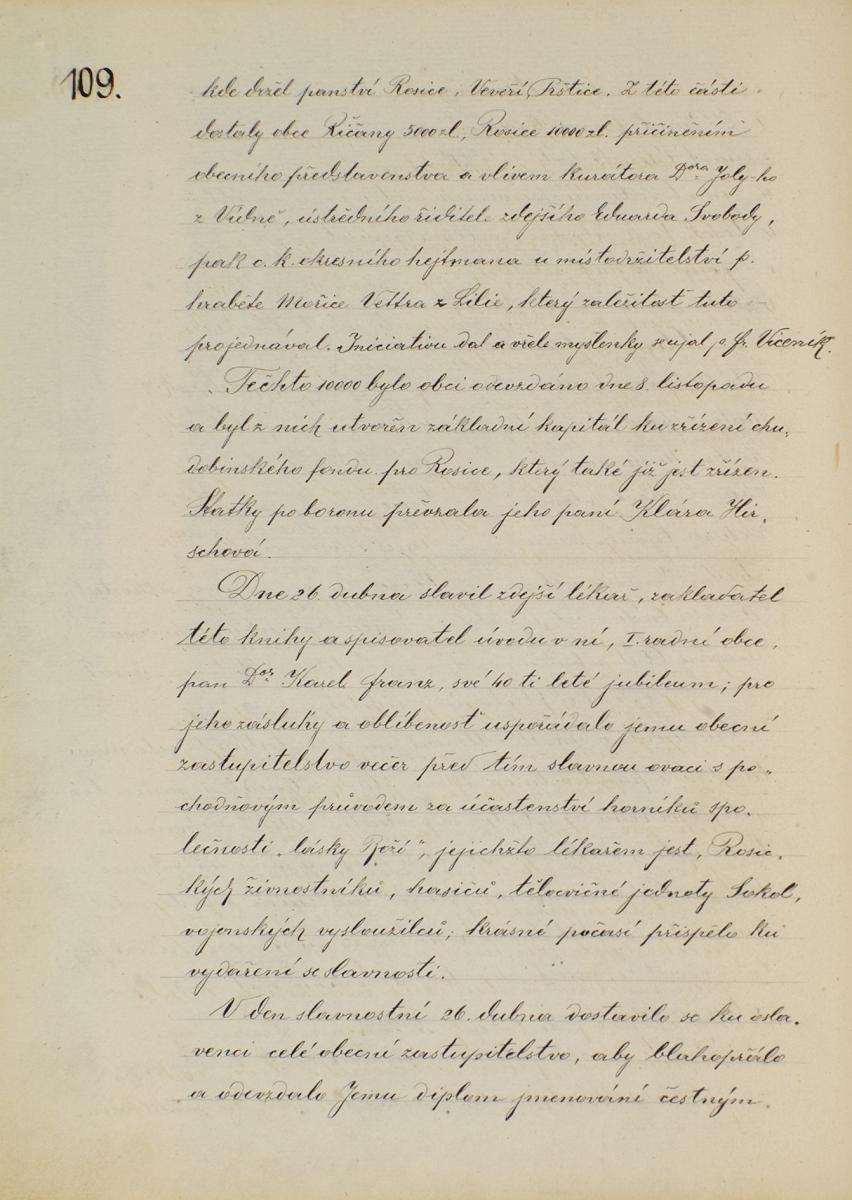 109.
kde držel panství Rosice, Veveří, Prštice. Z této části
dostaly obce Řičany 5000 zl., Rosice 10000 zl. přičiněním
obecního představenstva a vlivem kurátora Dora Joly-ho
z Vídně, ústředního ředitele zdejšího Eduarda Svobody,
pak c. k. okresního hejtmana u místodržitelství p.
hraběte Mořice Vettra z Lilie, který záležitost tuto
projednával. Iniciativu dal a vřele myšlenky se ujal p. Fr. Vičeník.
Těchto 10000 bylo obci odevzdáno dne 8. listopadu
a byl z nich utvořen základní kapitál ku zřízení chu„
dobinského fondu pro Rosice, který také již jest zřízen.
Statky po baronu převzala jeho paní Klára Hir„
schová.
Dne 26. dubna slavil zdejší lékař, zakladatel
této knihy a spisovatel úvodu v ní, I. radní obce,
pan Dor Karel Franz, své 40 ti leté jubileum; pro
jeho zásluhy a oblíbenost uspořádalo jemu obecní
zastupitelstvo večer před tím slavnou ovaci s po„
chodňovým průvodem za účastenství horníků spo„
lečnosti „lásky Boží", jejichžto lékařem jest, Rosic„
kých živnostníků, hasičů, tělocvičné jednoty Sokol,
vojenských vysloužilců; krásné počasí přispělo ku
vydaření se slavnosti.
V den slavnostní 26. dubna dostavilo se ku osla„
venci celé obecní zastupitelstvo, aby blahopřálo
a odevzdalo Jemu diplom jmenování čestným